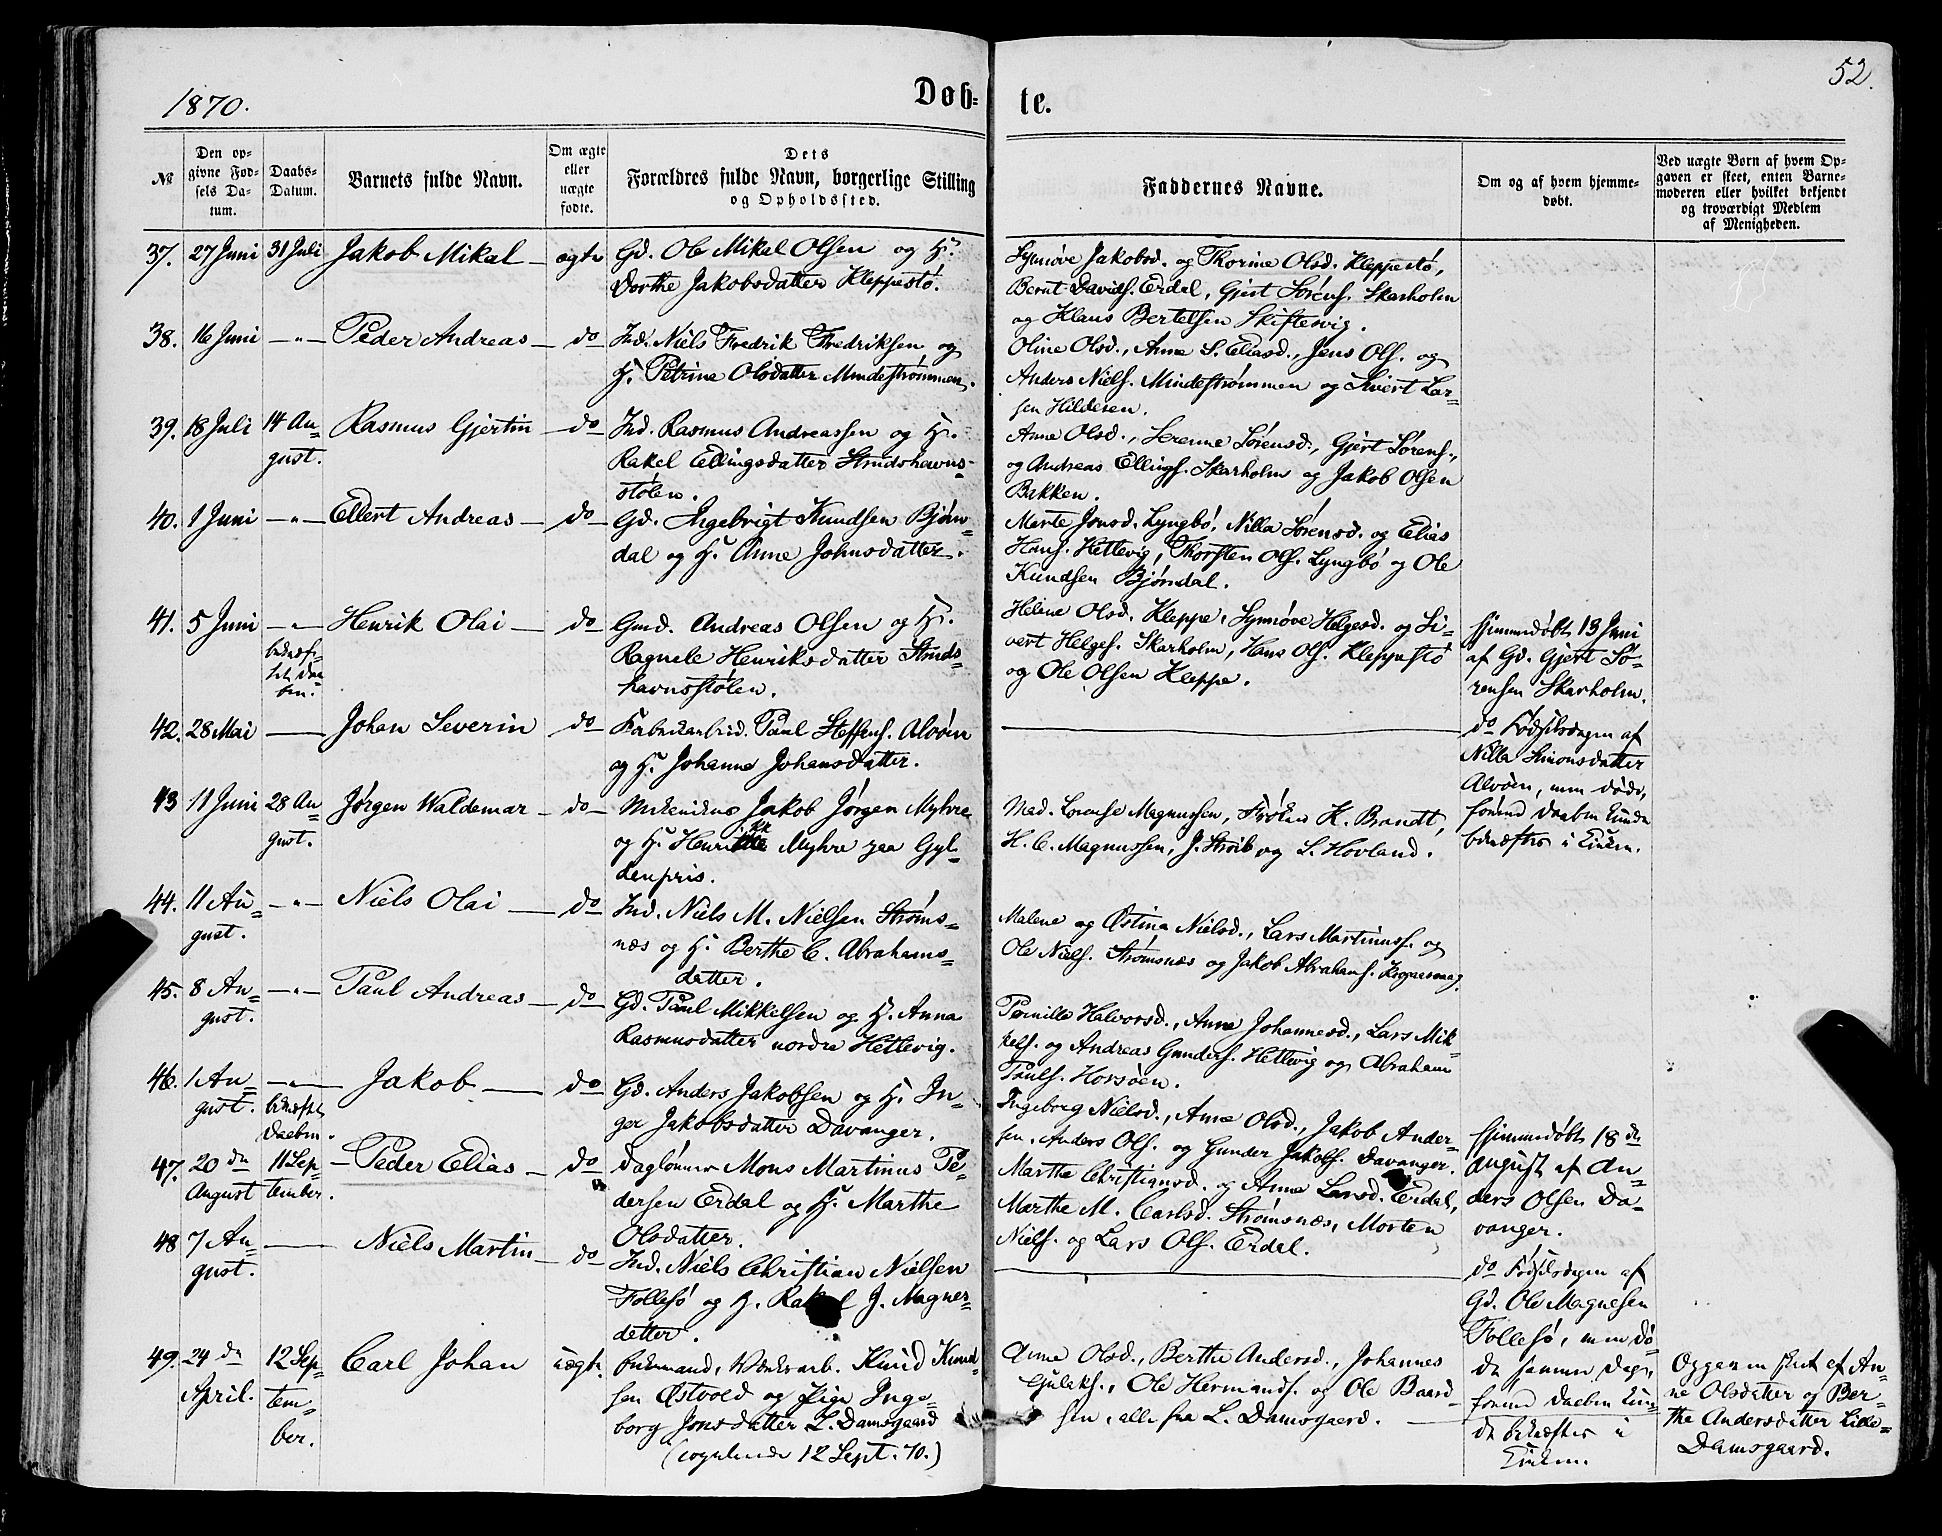 1870.
Døb-
te.
52.
No
Den op-
givne Fød-
sels Da-
tum.
Daabs-
Datum.
Barnets fulde Navn.
Om ægte
eller
uægte
fødte.
Dets
Forældres fulde Navn, borgerlige Stilling
og Opholdssted.
Faddernes Navne.
Om og af hvem hjemme-
døbt.
Ved uægte Børn af hvem Op-
gaven er skeet, enten Barne-
moderen eller hvilket bekjendt
og troværdigt Medlem
af Menigheden.
37. 27 Juni 31 Juli Jakob Mikal — ægte
Gd. Ole Mikal Olsen og H.
Dorthe Jakobsdatter Kleppestø.
Synnøve Jakobsd. og Thorine Olsd. Kleppestø,
Bernt Davids. Erdal, Gjert Sørens. Skarholm
og Klaus Bertelsen Skiftesvig.
38. 16 Juni —"— Peder Andreas — do
Ind. Niels Fredrik Fredriksen og
H. Petrine Olsdatter Mindestrømmen.
Oline Olsd., Anne S. Eliasd., Jens Ols. og
Anders Niels. Mindestrømmen og Sivert Lar=
sen Hilderen.
39. 18 Juli 14 Au=
gust.
Rasmus Gjertin — do —
Ind. Rasmus Andreassen og H.
Rakel Ellingsdatter Strudshavns=
stølen.
Anne Olsd., Serenne Sørensd., Gjert Sørens.,
og Andreas Ellings. Skarholm og Jakob Olsen
Bakken.
40. 1 Juni —"— Ellert Andreas — do —
Gd. Ingebrigt Knudsen Bjørn=
dal og H. Anne Johnsdatter.
Marte Jonsd. Lyngbø, Nilla Sørensd. og Elias
Hans. Hettevig, Thorsten Ols. Lyngbø og Ole
Knudsen Bjørndal.
41. 5 Juni —"— Henrik Olai — do —
Gmd. Andreas Olsen og H.
Ragnele Henriksdatter Struds=
havnsstølen.
Helene Olsd. Kleppe, Synnøve Helgesd. og Si=
vert Helges. Skarholm, Hans Ols. Kleppestø
og Ole Olsen Kleppe.
Hjemmedøbt 13 Juni
af Gd. Gjert Sø=
rensen Skarholm.
42. 28 Mai — Johan Severin do
Fabrikarbeid. Paul Steffens. Alvøen
og H. Johanne Johansdatter.
do Fødselsdagen af
Nilla Simonsdatter
Alvøen, men døde,
førend Daaben kunde
bekræftes i Kirken.
43 11 Juni 28 Au=
gust.
Jørgen Waldemar — do —
Mekanikus Jakob Jørgen Myhre
og H. Henrikke Myhre paa Gyl=
denpris.
Mad. Lovise Magnussen, Frøken K. Brandt,
H. C. Magnussen, J. Streib og L. Hovland.
44. 11 Au=
gust.
—"— Niels Olai — do —
Ind. Niels M. Nielsen Strøms=
næs og H. Berthe C. Abrahams=
datter.
Malene og Østina Nielsd., Lars Martinuss. og
Ole Niels. Strømsnæs og Jakob Abrahams.
45. 8 Au=
gust.
—"— Paul Andreas — do
Gd. Paul Mikkelsen og H. Anna
Rasmusdatter nordre Hettevig.
Pernille Halvorsd., Anne Johannesd., Lars Mik=
kels. og Andreas Gunders. Hettevig og Abraham
Pauls. Horsøen.
46. 1 Au=
gust.
—"—
bekræftet
Daaben.
Jakob — do —
Gd. Anders Jakobsen og H. In=
ger Jakobsdatter Davanger.
Ingeborg Nielsd., Anna Olsd., Jakob Ander=
sen, Anders Ols. og Gunder Jakobs. Davanger.
Hjemmedøbt 18 de
August af An=
ders Olsen Da=
vanger.
47. 20 de
August
11 Sep
tember.
— Peder Elias — do
Daglønner Mons Martinus Pe=
dersen Erdal og H. Marthe
Olsdatter.
Marthe Christiansd. og Anne Larsd. Erdal,
Marthe M. Carlsd. Strømsnæs, Morten
Niels. og Lars Ols. Erdal.
48 7 Au=
gust.
— Niels Martin — do
Ind. Niels Christian Nielsen
Follesø og H. Rakel J. Magnes=
datter.
do Fødselsdagen af
Gd. Ole Magnesen
Follesø, men dø=
de samme Dag,
førend Daaben kun=
de bekræftes i
Kirken.
49. 24 de
April.
12 Sep
tem=
ber.
Carl Johan uægte
Enkemand, Værksarb. Knud Knud=
sen Østvold og Pige Inge=
borg Jonsdatter L. Damsgaard
(copulerede 12 Sept. 70.)
Anne Olsd., Berthe Andersd., Johannes
Gulaks., Ole Hermands. og Ole Baard=
sen, alle fra L. Damsgaard.
Opgaven skeet af An=
ne Olsdatter og Ber=
the Andersdatter Lille=
Damsgaard.